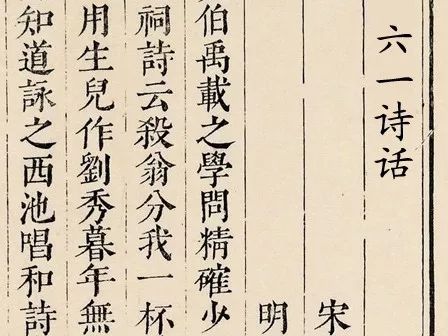 六一诗话
宋
明
伯禹載之學問精確少
祠詩云殺翁分我一杯
用生兒作劉秀暮年無
知道詠之西池唱和詩